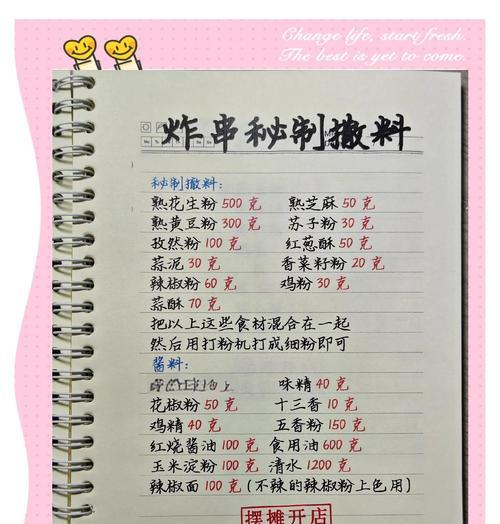 Change life, start fresh.
The best is yet to come.
炸串秘制撒料
秘制撒料：
熟花生粉500克 熟芝酥50克
熟黄豆粉300克 苏子粉30克
孜然粉100克 红葱酥50克
蒜泥30克 香菜籽粉20克
辣椒粉60克 鸡粉30克
蒜酥70克
把以上这些食材混合在一起
然后用打粉机打成细粉即可
酱料：
味精40克
花椒粉50克 十三香10克
鸡精40克 五香粉150克
红烧酱油100克 食用油600克
玉米淀粉100克 清水1200克
辣椒面100克（不辣的辣椒粉上色用）
摆摊开店